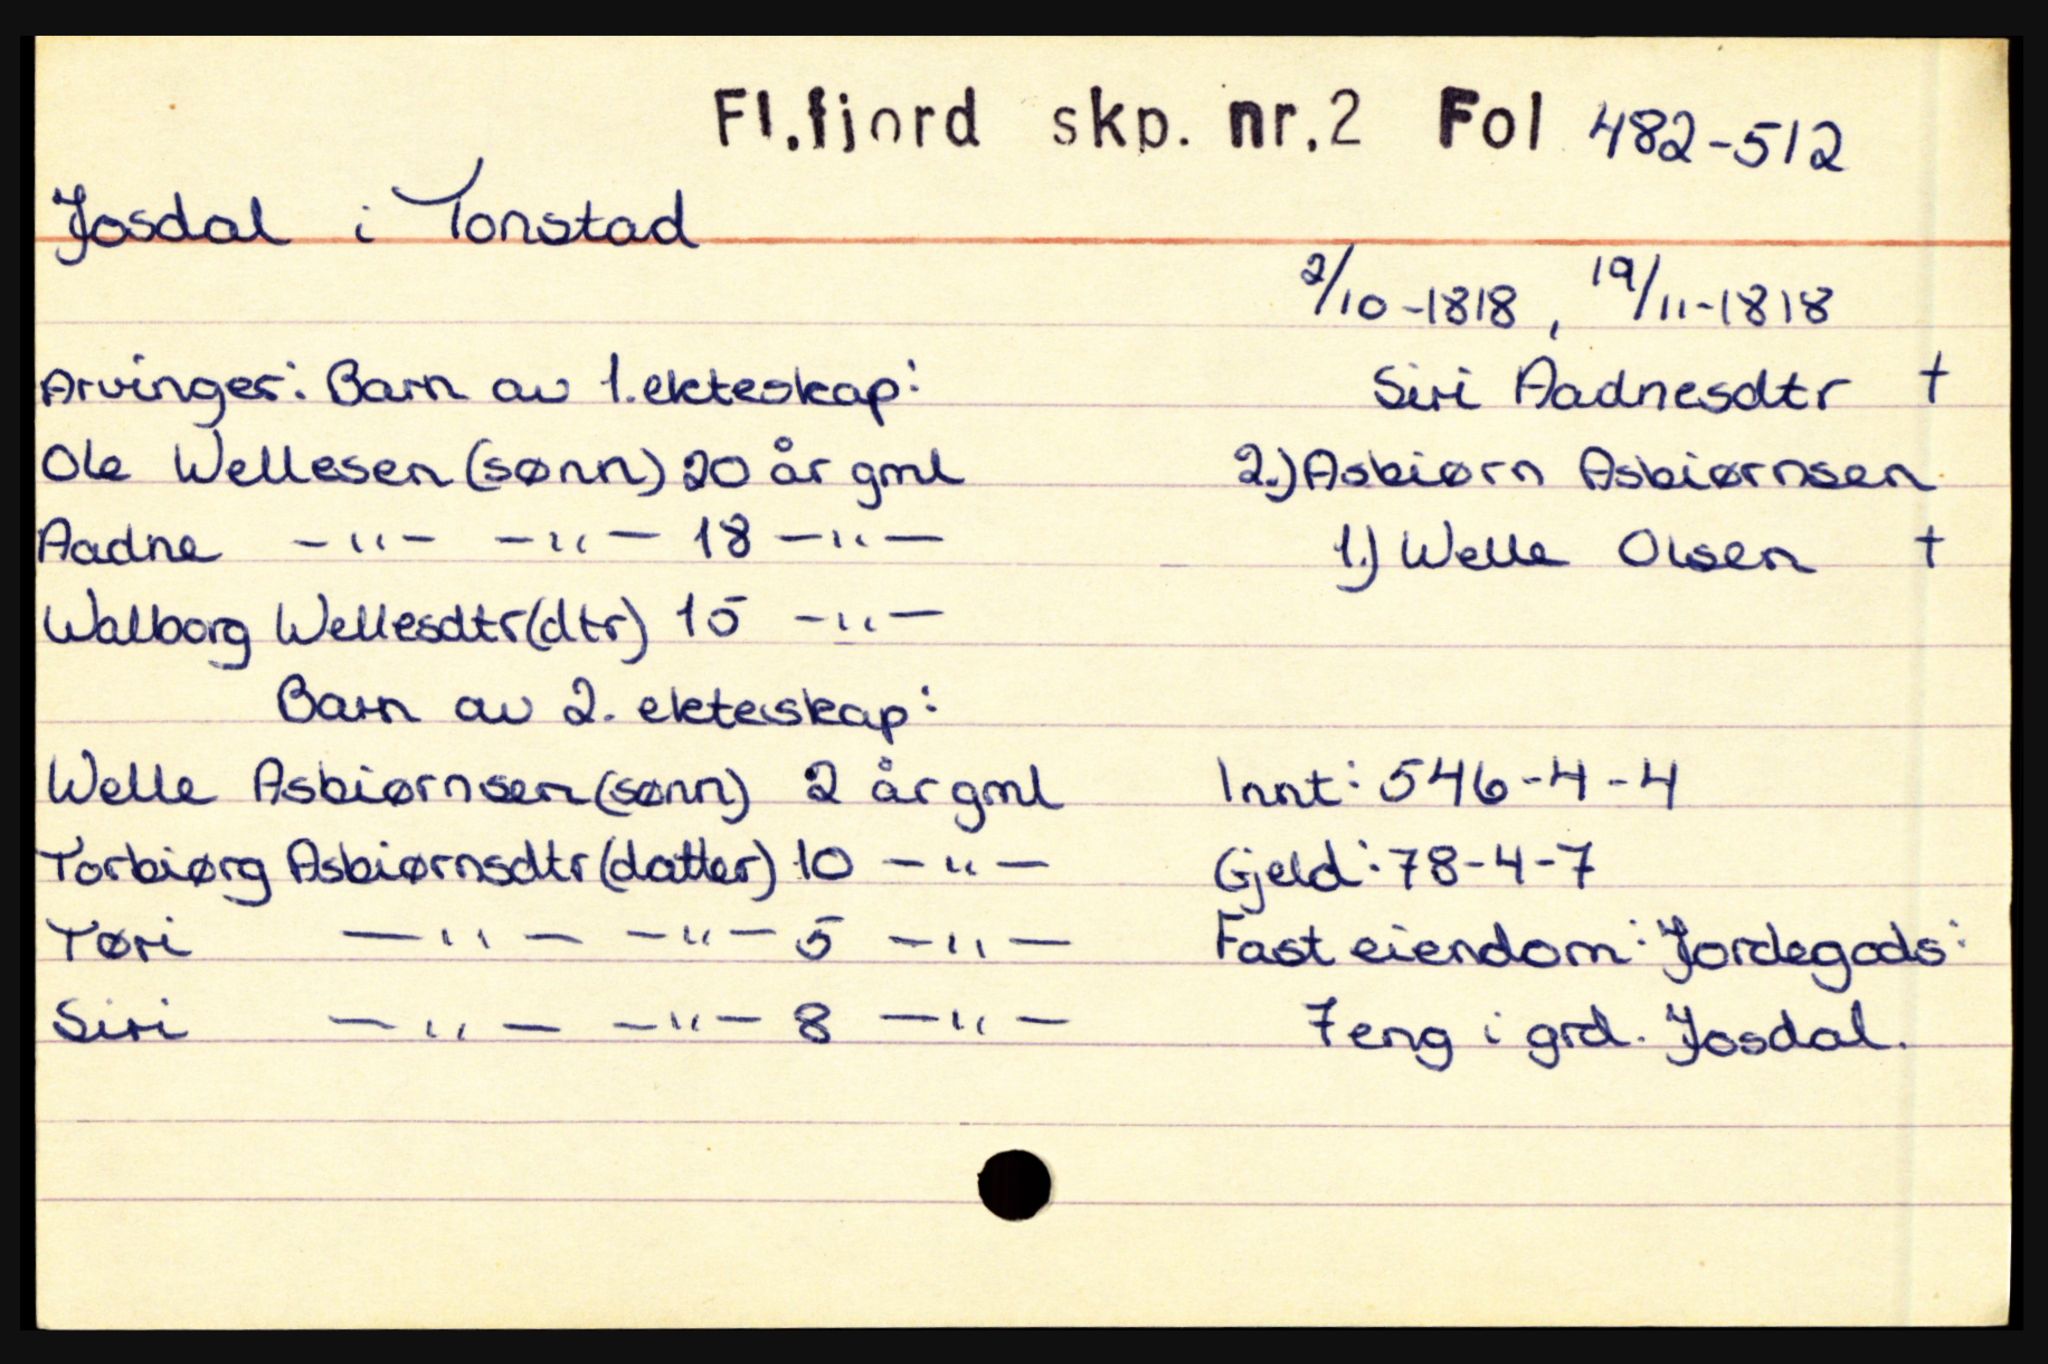 Fl.fjord skp. nr.2 Fol 482-512
Josdal i Tonstad
2/10-1818, 19/11-1818
Arvinger: Barn av 1.ekteskap:
Siri Aadnesdtr †
Ole Wellesen (sønn) 20 år gml
2.) Asbiørn Asbiørnsen
Aadne -"- -"- 18 -"-
1.) Welle Olsen †
Walborg Wellesdtr (dtr) 15 -"-
Barn av 2. ekteskap:
Welle Asbiørnsen (sønn) 2 år gml
Innt: 546-4-4
Torbiørg Asbiørnsdtr (datter) 10 -"-
Gjeld: 78-4-7
Tøri -"- -"- 5 -"-
Fast eiendom: Jordegods:
Siri -"- -"- 8 -"-
7 eng i grd. Josdal.